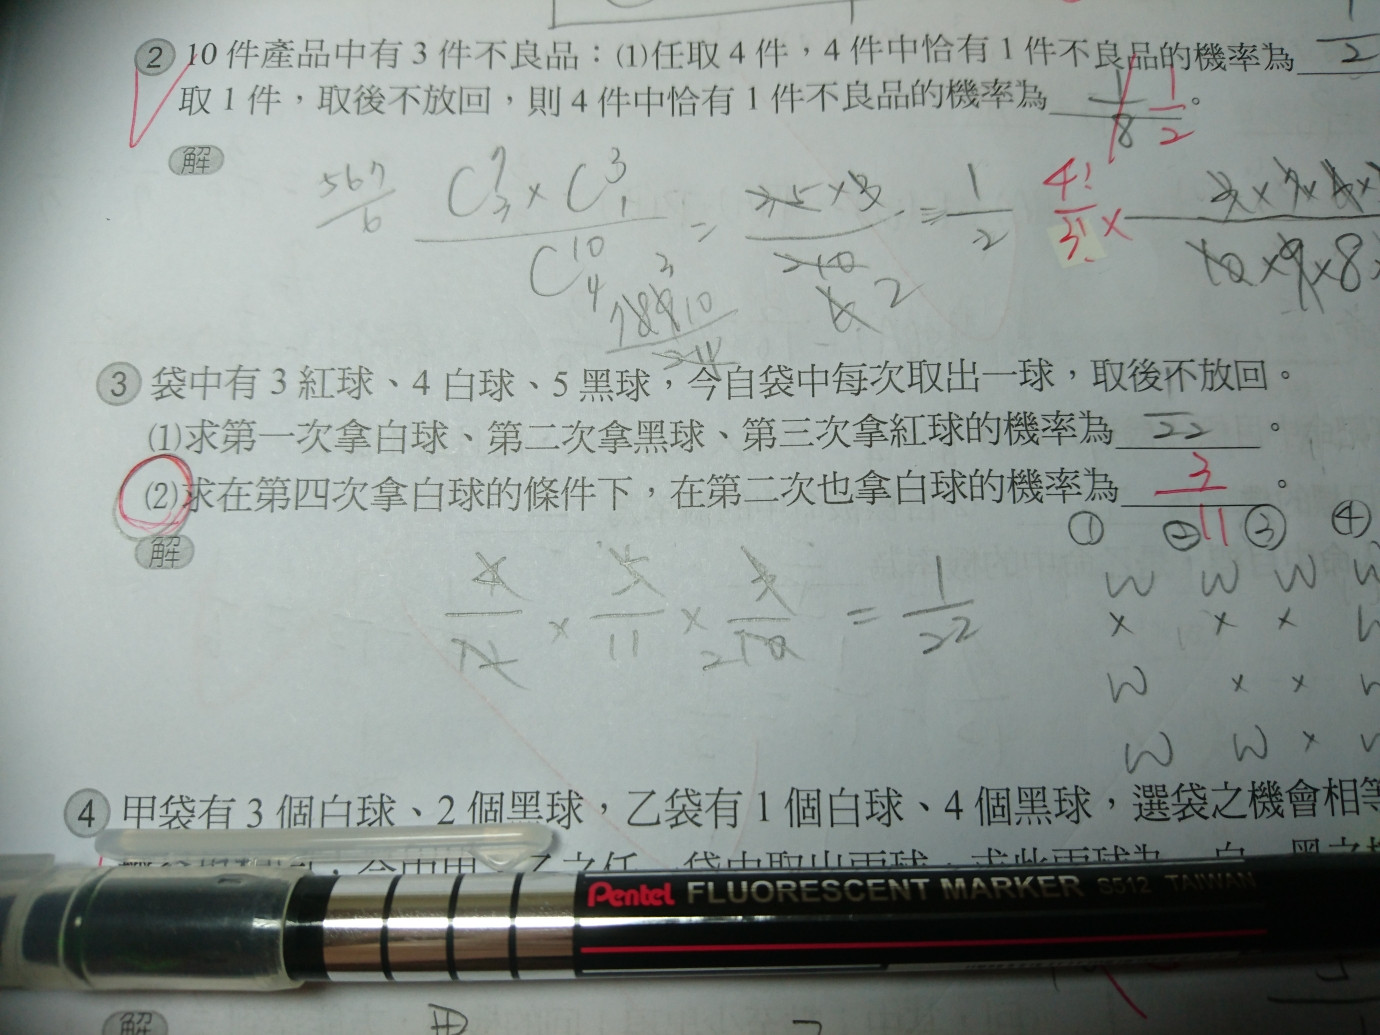 ② 10 件產品中有 3 件不良品：⑴任取 4 件，4 件中恰有 1 件不良品的機率為 2
取 1 件，取後不放回，則 4 件中恰有 1 件不良品的機率為 1/8 1/2。
解
567/6 C⁷₃ × C³₁ / C¹⁰₄ = 35 × 3 / 210 = 1/2 4!/3! × 3 × 7 × 6 × / 10 × 9 × 8
6 2
78910
③ 袋中有 3 紅球、4 白球、5 黑球，今自袋中每次取出一球，取後不放回。
⑴求第一次拿白球、第二次拿黑球、第三次拿紅球的機率為 22。
⑵求在第四次拿白球的條件下，在第二次也拿白球的機率為 3/11。
解
① ② ③ ④
4/12 × 5/11 × 3/10 = 1/22
2
W W W W
× × × W
W × × W
W W × W
④ 甲袋有 3 個白球、2 個黑球，乙袋有 1 個白球、4 個黑球，選袋之機會相等
Pentel FLUORESCENT MARKER S512 TAIWAN
解 甲